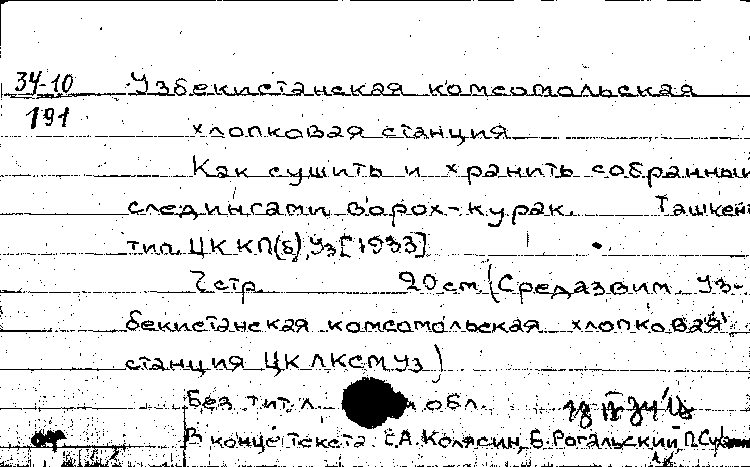 34-10 Узбекистанская комсомольская
191
хлопковая станция
Как сушить и хранить собранный
следингами ворох-курак. Ташкент
тип. ЦК КП(б)Уз [1933]
7 стр. 20 см. (Средазвим. Уз-
бекистанская комсомольская хлопковая
станция ЦК ЛКСМ Уз)
Без тит. л. обл.
В конце текста: С.А. Колясин, Б. Рогальский, П.